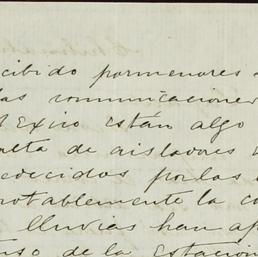 cibido pormenores
las comunicaciones
están algo
alta de aisladores
decidos por las
notablemente la
lluvias han
de la estación